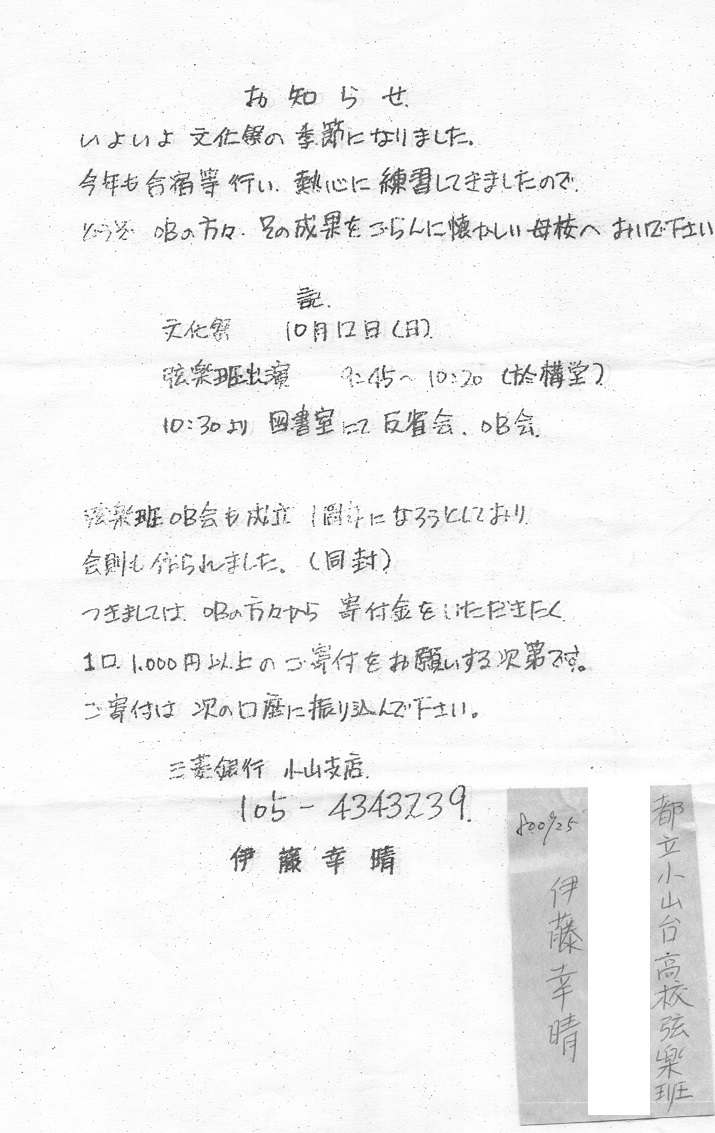 お知らせ
いよいよ文化祭の季節になりました。
今年も合宿等行い、熱心に練習してきましたので、
どうぞ OBの方々、その成果をごらんに懐かしい母校へおいで下さい
記
文化祭 10月12日(日)
弦楽班出演 9:45〜10:20 (於講堂)
10:30より 図書室にて 反省会、OB会
弦楽班OB会も成立1周年になろうとしており
会則も作られました。(同封)
つきましては、OBの方々から 寄付金をいただきたく
1口 1,000円以上のご寄付をお願いする次第です。
ご寄付は 次の口座に振り込んで下さい。
三菱銀行 小山支店
105-4343239.
伊藤幸晴
都立小山台高校弦楽班
伊藤幸晴